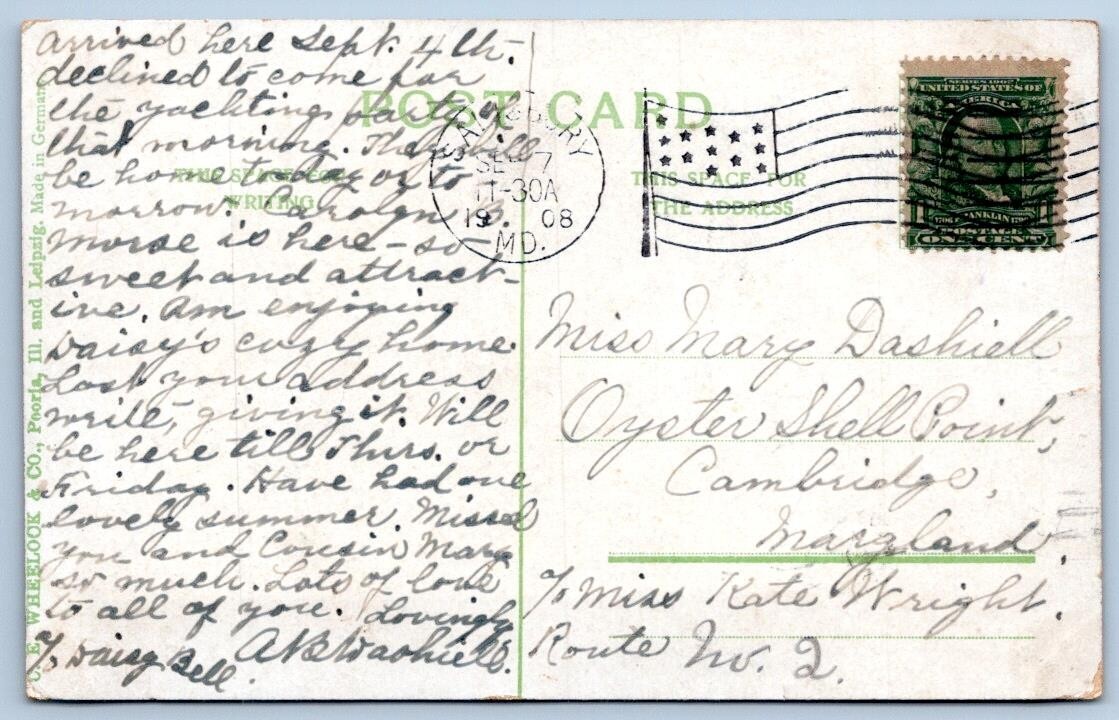 arrived here Sept. 4th.
declined to come for
the yachting party of
that morning. They will
be home to day or to
morrow. Carolyn B.
Morse is here – so
sweet and attract-
ive. Am enjoying
Daisy's cozy home.
Lost your address
write, giving it. Will
be here till Thurs. or
Friday. Have had one
lovely summer. Missed
you and Cousin Mary
so much. Lots of love
to all of you. Lovingly
A B Dashiell.
c/o Daisy Bell.
POST CARD
THIS SPACE FOR
WRITING
THIS SPACE FOR
THE ADDRESS
C. E. WHEELOCK & CO., Peoria, Ill. and Leipzig. Made in German
SALISBURY
SEP 7
11-30A
19 08
MD.
SERIES 1902
UNITED STATES OF
AMERICA
1706 FRANKLIN 1790
1 POSTAGE 1
ONE CENT
Miss Mary Dashiell
Oyster Shell Point,
Cambridge,
Maryland.
c/o Miss Kate Wright.
Route No. 2.